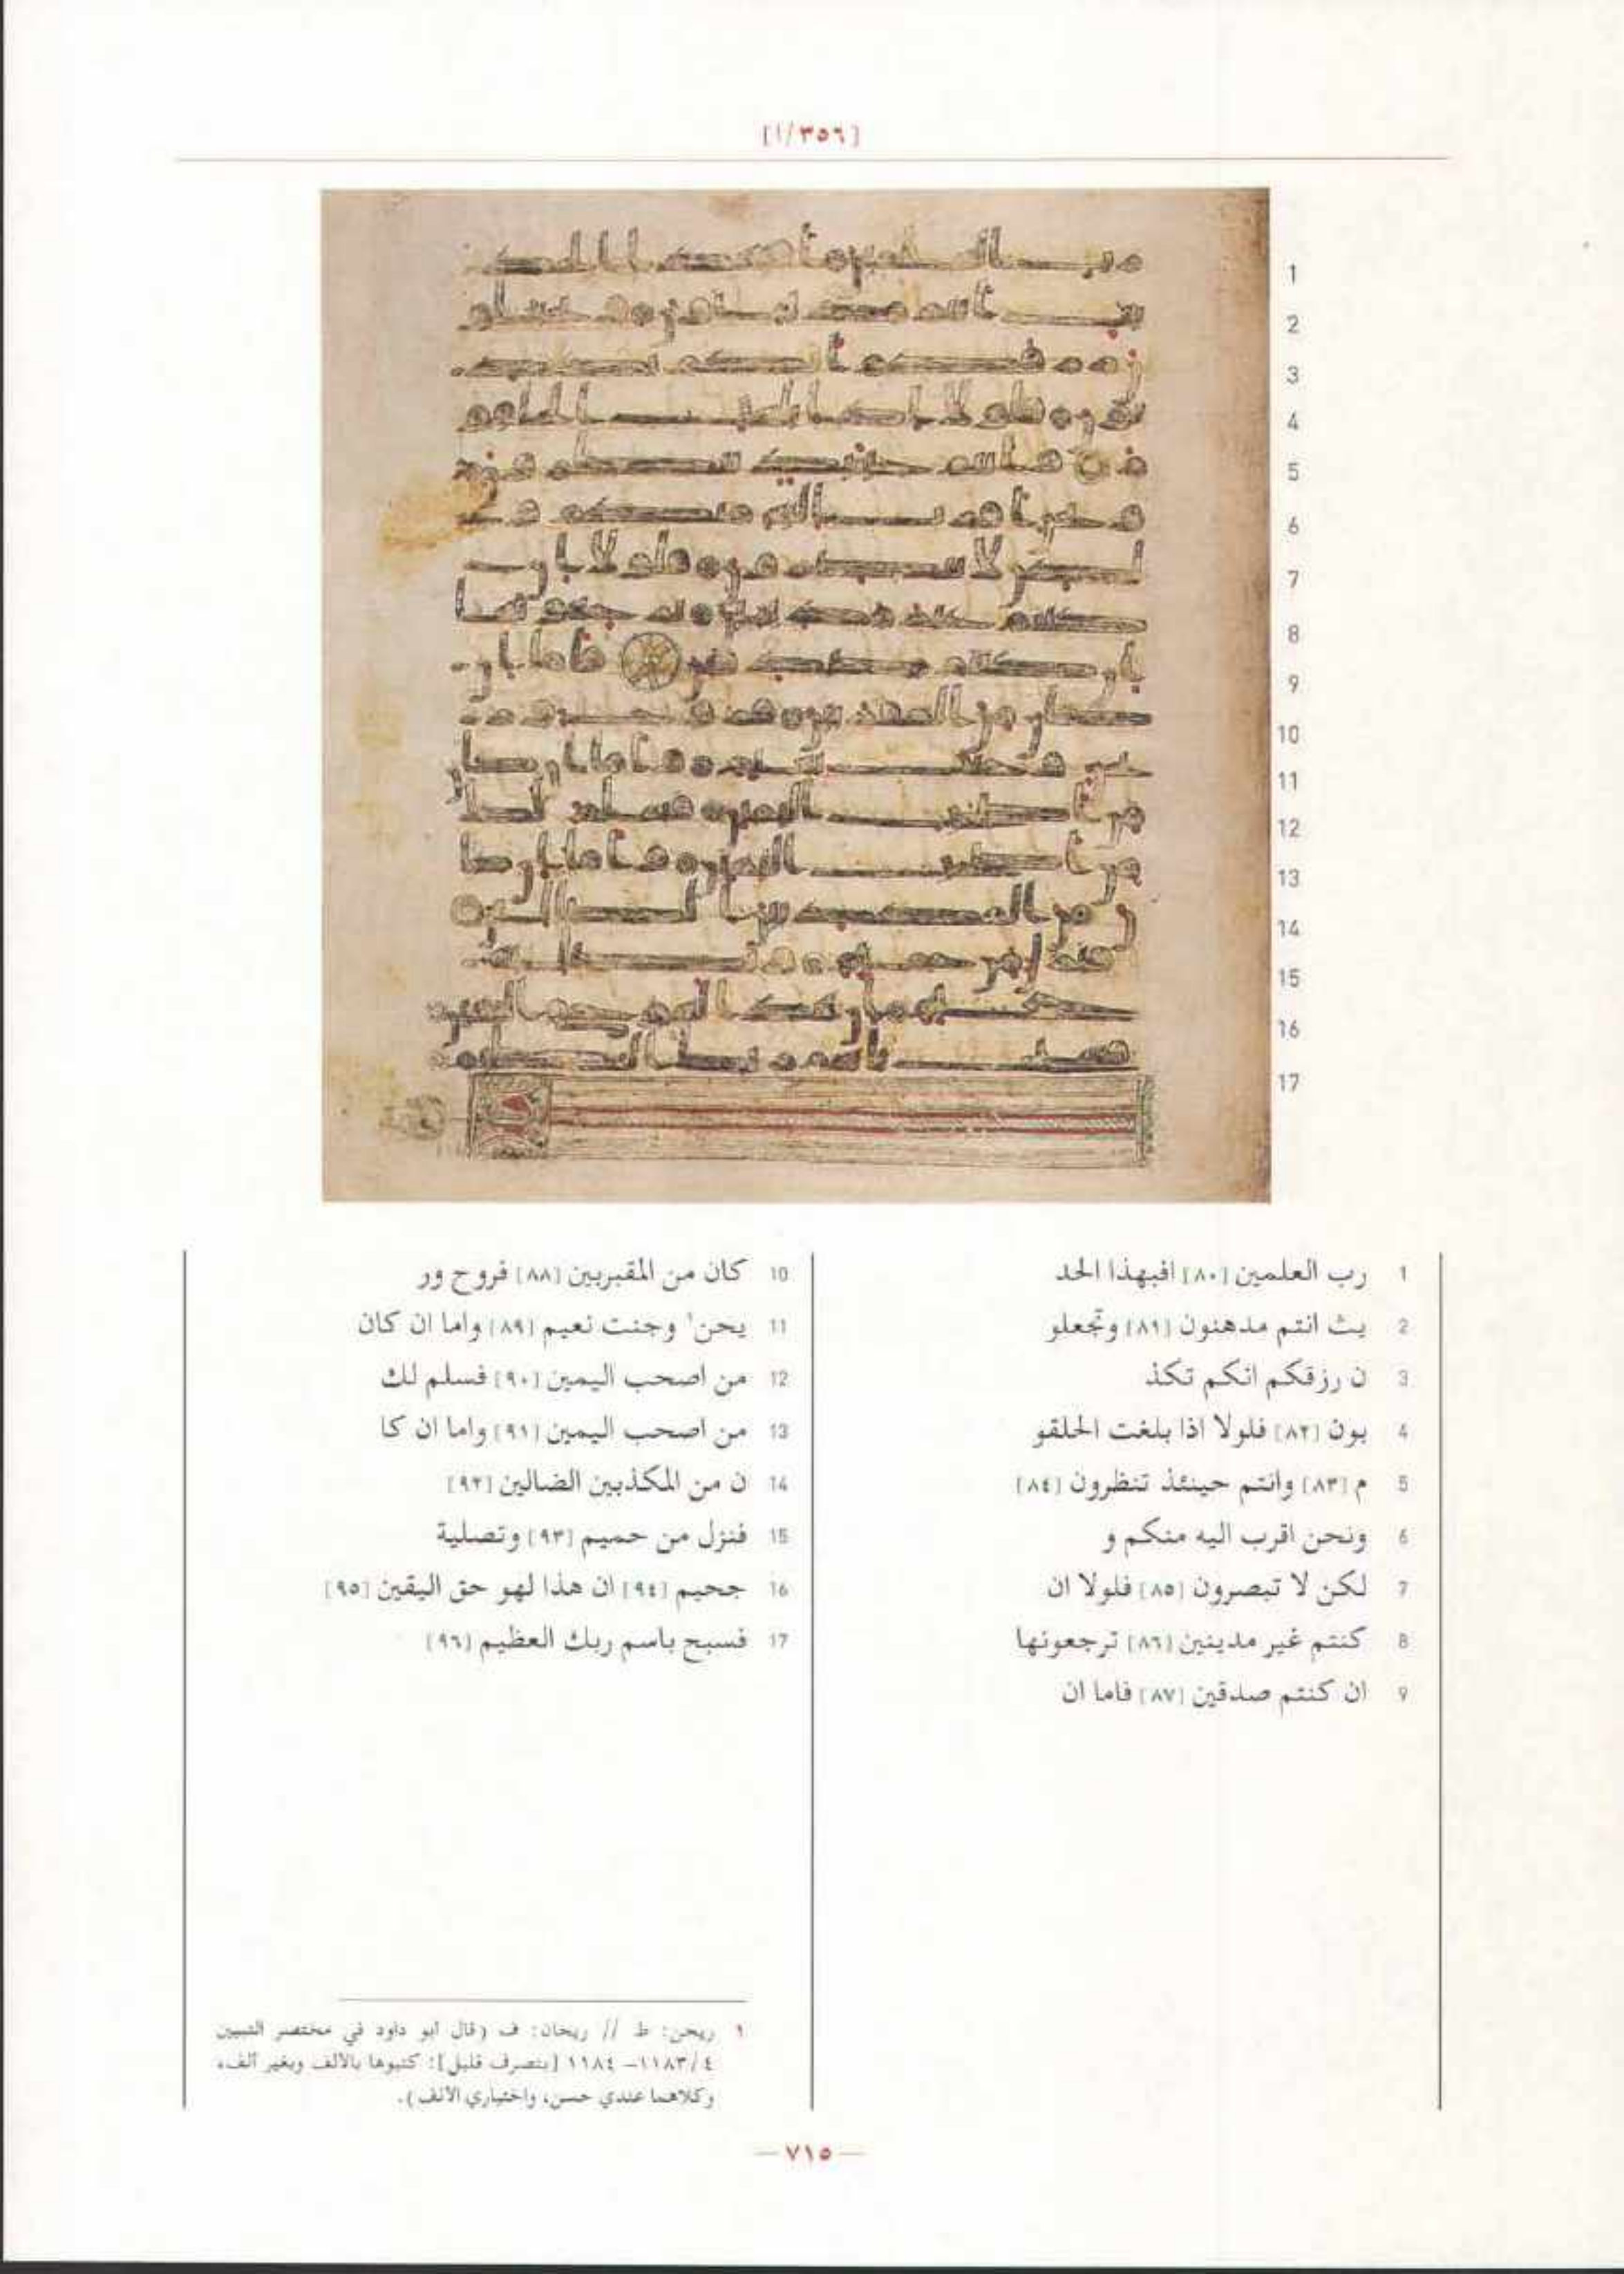 [٣٥٦/ا]
1 رب العلمين [٨٠] افبهذا الحد
2 يث انتم مدهنون [٨١] وتجعلو
3 ن رزقكم انكم تكذ
4 بون [٨٢] فلولا اذا بلغت الحلقو
5 م [٨٣] وانتم حينئذ تنظرون [٨٤]
6 ونحن اقرب اليه منكم و
7 لكن لا تبصرون [٨٥] فلولا ان
8 كنتم غير مدينين [٨٦] ترجعونها
9 ان كنتم صدقين [٨٧] فاما ان
10 كان من المقربين [٨٨] فروح ور
11 يحن١ وجنت نعيم [٨٩] واما ان كان
12 من اصحب اليمين [٩٠] فسلم لك
13 من اصحب اليمين [٩١] واما ان كا
14 ن من المكذبين الضالين [٩٢]
15 فنزل من حميم [٩٣] وتصلية
16 جحيم [٩٤] ان هذا لهو حق اليقين [٩٥]
17 فسبح باسم ربك العظيم [٩٦]
١ ريحن: ط // ريحان: ف (قال ابو داود في مختصر التبيين
٤/١١٨٣– ١١٨٤ [بتصرف قليل]: كتبوها بالالف وبغير ألف،
وكلاهما عندي حسن، واختياري الالف).
— ٧١٥ —